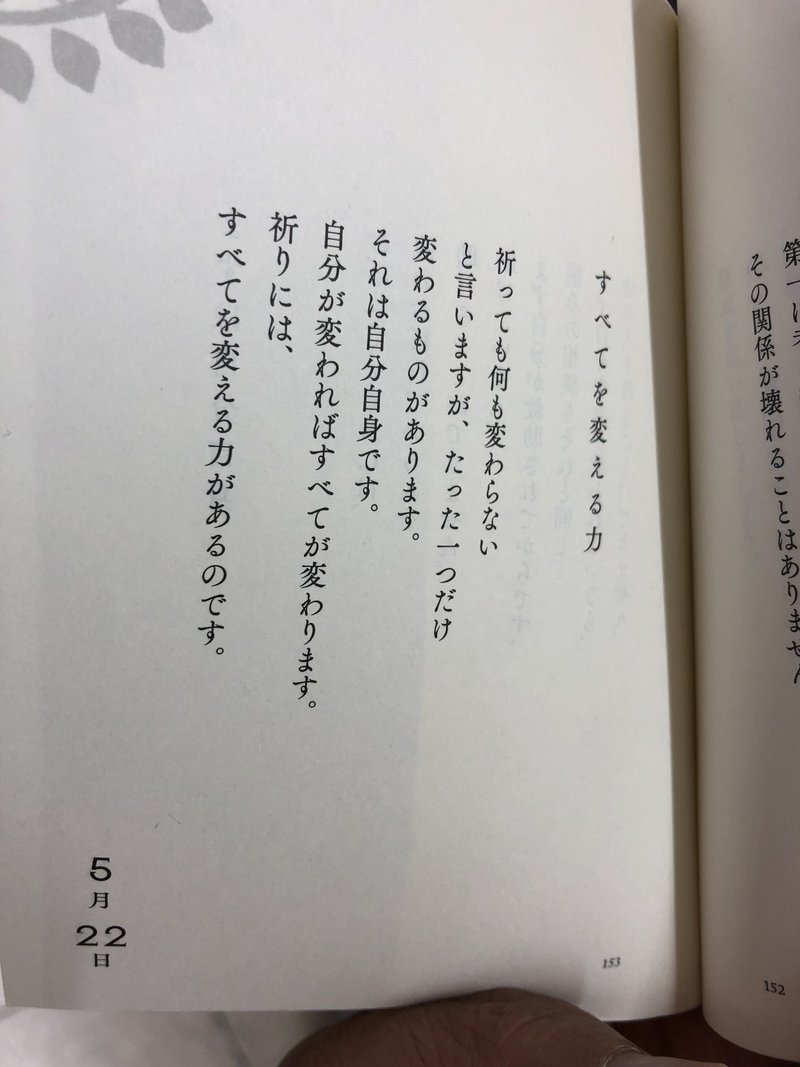 その関係が壊れることはありません
152
すべてを変える力
祈っても何も変わらない
と言いますが、たった一つだけ
変わるものがあります。
それは自分自身です。
自分が変わればすべてが変わります。
祈りには、
すべてを変える力があるのです。
5月22日
153